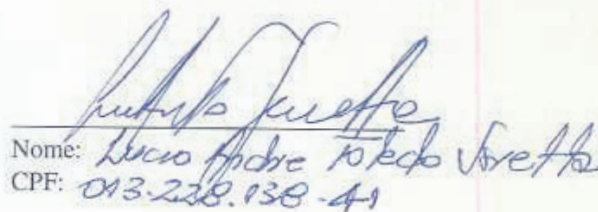 Nome: Lucio Andre Toledo
CPF: 013.238.138-41